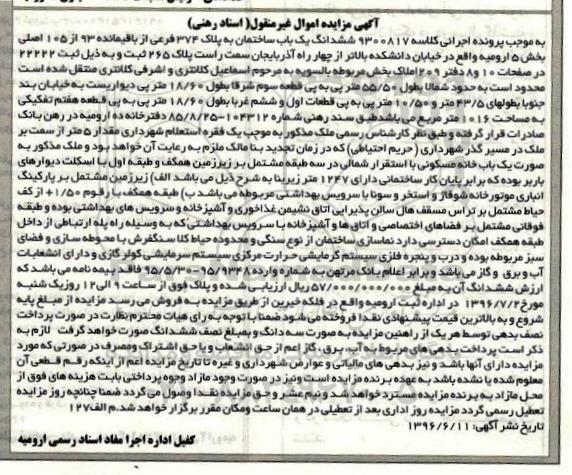 آگهی مزایده اموال غیرمنقول( اسناد رهنی)
به موجب پرونده اجرائی کلاسه ۹۳۰۰۸۱۷ ششدانگ یک باب ساختمان به پلاک ۳۷۴ فرعی از باقیمانده ۹۳ از ۱۰۵ اصلی
بخش ۵ ارومیه واقع در خیابان دانشکده بالاتر از چهار راه آذربایجان سمت راست پلاک ۲۶۵ ثبت و به ذیل ثبت ۲۲۲۲۲
در صفحات ۱۰ و ۸ دفتر ۲۰۹ املاک بخش مربوطه بالسویه به مرحوم اسماعیل کلانتری و اشرفی کلانتری منتقل شده است
محدود است به حدود شمالا بطول ۵۵/۵۰ متر پی به پی قطعه سوم شرقا بطول ۱۸/۶۰ متر پی دیواریست به خیابان بند
جنوبا بطولهای ۴۳/۵ متر و ۱۰/۵۰ متر پی به پی قطعات اول و ششم غربا بطول ۱۸/۶۰ متر پی به پی قطعه هفتم تفکیکی
به مساحت ۱۰۱۶ متر مربع می باشد طبق سند رهنی شماره ۱۰۴۳۱۲-۸۵/۸/۲۵ دفترخانه ده ارومیه در رهن بانک
صادرات قرار گرفته و طبق نظر کارشناس رسمی ملک مذکور به موجب یک فقره استعلام شهرداری مقدار ۵ متر از سمت بر
ملک در مسیر گذر شهرداری ( حریم احتیاطی) که در زمان تجدید بنا مالک ملزم به رعایت آن خواهد بود و ملک مذکور به
صورت یک باب خانه مسکونی با استقرار شمالی در سه طبقه مشتمل بر زیرزمین همکف و طبقه اول با اسکلت دیوارهای
باربر بوده که برابر پایان کار ساختمانی دارای ۱۲۴۷ متر زیربنا به شرح ذیل می باشد الف) زیرزمین مشتمل بر پارکینگ
انباری موتور خانه شوفاژ و استخر و سونا با سرویس بهداشتی مربوطه می باشد ب) طبقه همکف با رقوم ۱/۵۰+ از کف
حیاط مشتمل بر تراس مسقف هال سالن پذیرایی اتاق نشیمن غذاخوری و آشپزخانه و سرویس های بهداشتی بوده و طبقه
فوقانی مشتمل بر فضاهای اختصاصی و اتاق ها و آشپزخانه با سرویس بهداشتی که به وسیله راه پله ارتباطی از داخل
طبقه همکف امکان دسترسی دارد نماسازی ساختمان از نوع سنگی و محدوده حیاط کلا سنگفرش با محوطه سازی و فضای
سبز مربوطه بوده و درب و پنجره فلزی سیستم گرمایشی حرارت مرکزی سیستم سرمایشی کولر گازی و دارای انشعابات
آب و برق و گاز می باشد و برابر اعلام بانک مرتهن به شماره وارده ۹۳۴۸-۹۵/۵/۳۰ فاقد بیمه نامه می باشد که
ارزش ششدانگ آن به مبلغ ۵۷/۰۰۰/۰۰۰/۰۰۰ ریال ارزیابی شده و پلاک فوق از ساعت ۹ الی ۱۲ روز یک شنبه
مورخ ۱۳۹۶/۷/۲ در اداره ثبت ارومیه واقع در فلکه خیرین از طریق مزایده به فروش می رسد مزایده از مبلغ پایه
شروع و به بالاترین قیمت پیشنهادی نقدا فروخته می شود ضمنا با توجه به رای هیات محترم نظارت در صورت پرداخت
نصف بدهی توسط هر یک از راهنین مزایده به صورت سه دانگ و بمبلغ نصف ششدانگ صورت خواهد گرفت لازم به
ذکر است پرداخت بدهی های مربوط به آب، برق، گاز اعم از حق انشعاب و یا حق اشتراک و مصرف در صورتی که مورد
مزایده دارای آنها باشد و نیز بدهی های مالیاتی و عوارض شهرداری و غیره تا تاریخ مزایده اعم از اینکه رقم قطعی آن
معلوم شده یا نشده باشد به عهده برنده مزایده است و نیز در صورت وجود مازاد وجوه پرداختی بابت هزینه های فوق از
محل مازاد به برنده مزایده مسترد خواهد شد و نیم عشر و حق مزایده نقدا وصول می گردد ضمنا چنانچه روز مزایده
تعطیل رسمی گردد مزایده روز اداری بعد از تعطیلی در همان ساعت و مکان مقرر برگزار خواهد شد. م الف ۱۲۷
تاریخ نشر آگهی: ۱۳۹۶/۶/۱۱
کفیل اداره اجرا مفاد اسناد رسمی ارومیه